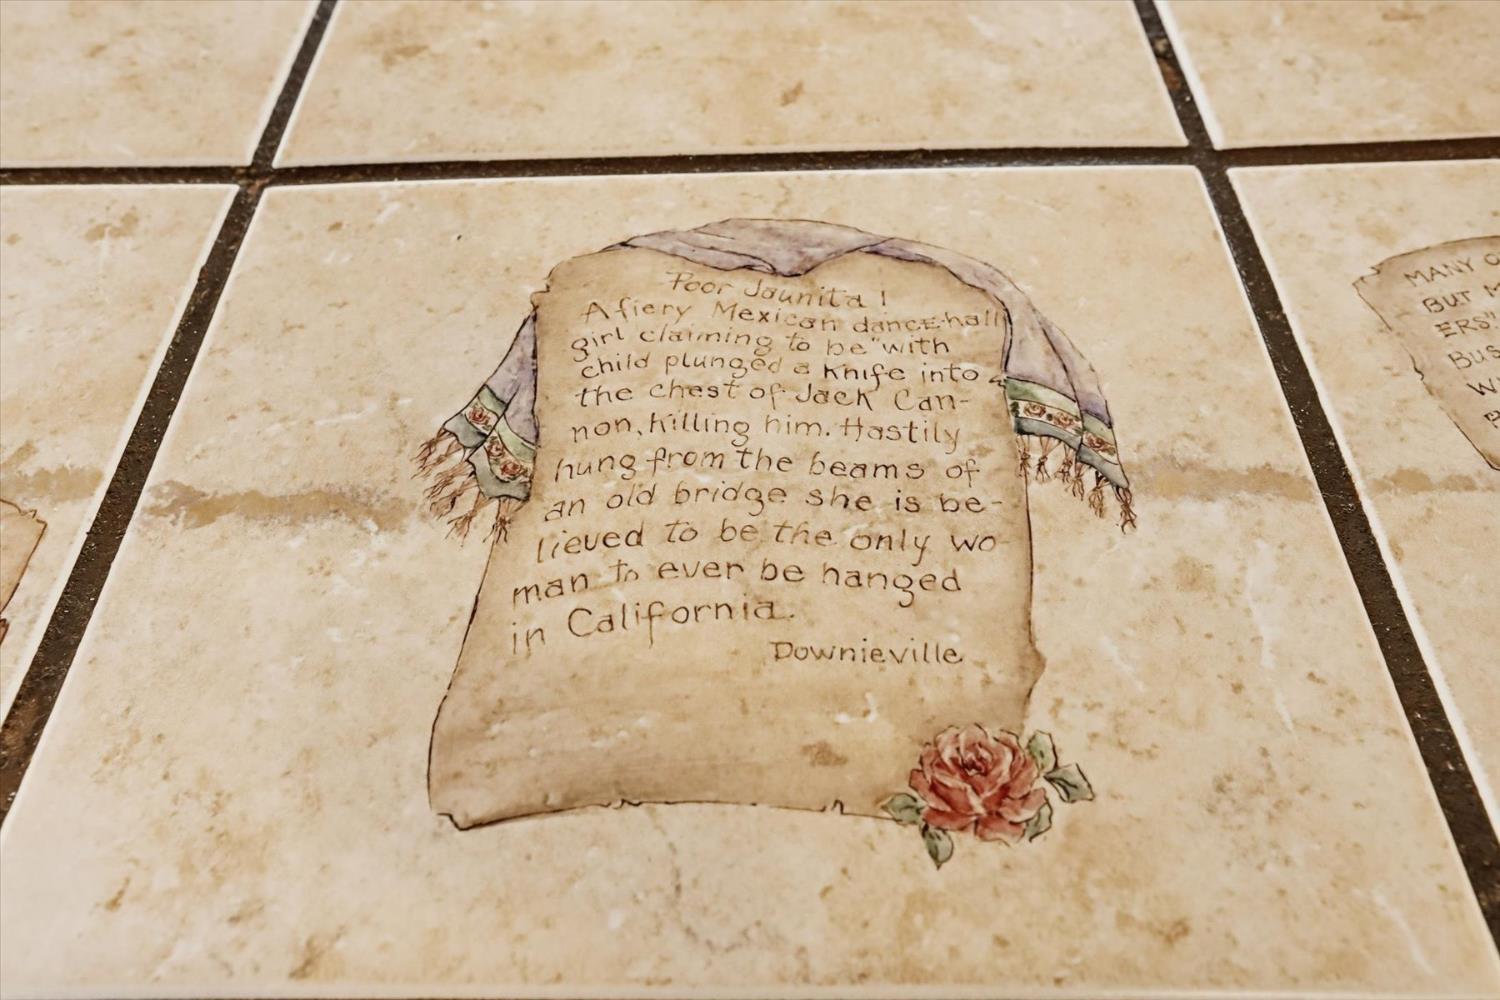 Poor Jaunita!
A fiery Mexican dance-hall
girl claiming to be "with
child plunged a knife into
the chest of Jack Can-
non, killing him. Hastily
hung from the beams of
an old bridge she is be-
lieved to be the only wo-
man to ever be hanged
in California.
Downieville
MANY
BUT
ERS"
BUS